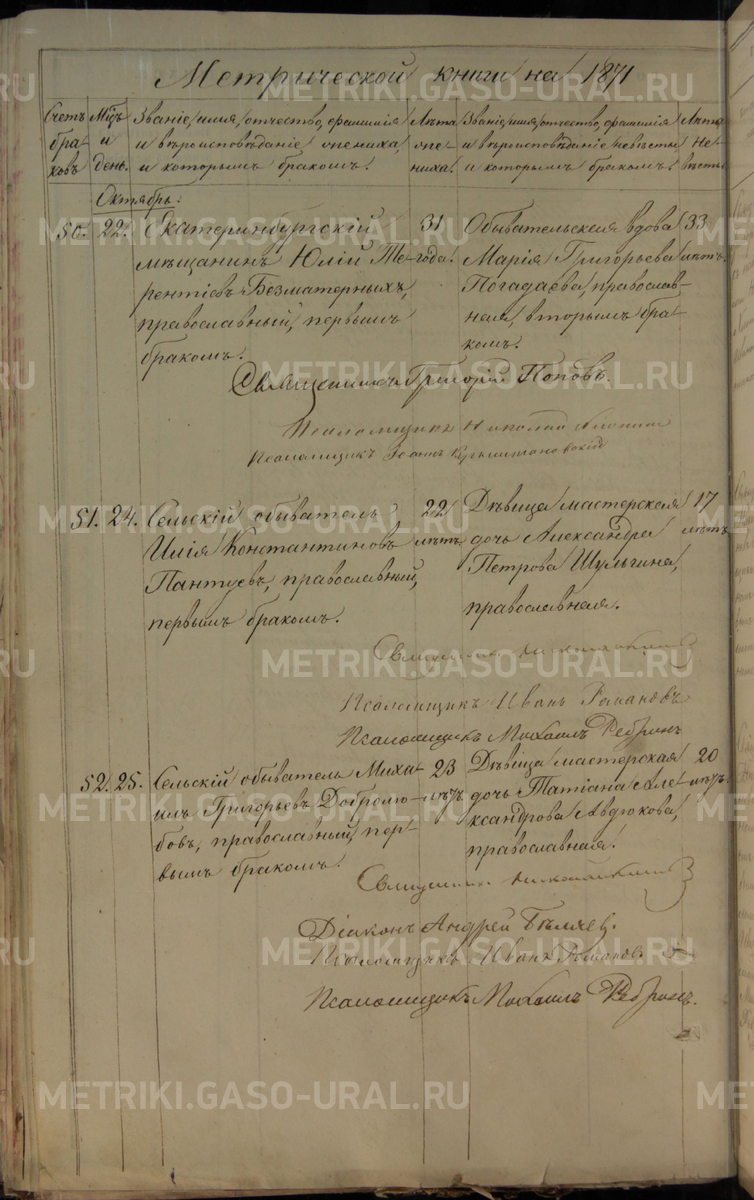 Метрической книги на 1871
Счетъ браковъ.
Мѣсяцъ и день.
Званіе, имя, отчество, фамилія
и вѣроисповѣданіе жениха,
и которымъ бракомъ.
Лѣта жениха.
Званіе, имя, отчество, фамилія
и вѣроисповѣданіе невѣсты
и которымъ бракомъ.
Лѣта невѣсты.
Октябрь.
50. 22. Екатеринбургскій
мѣщанинъ Юлій Те-
рентіевъ Безматерныхъ,
православный, первымъ
бракомъ.
31
года.
Обывательская вдова
Марія Григорьева
Погадаева, православ-
ная, вторымъ бра-
комъ.
33
лѣтъ.
Священникъ Григорій Поповъ.
Псаломщикъ Николай
Псаломщикъ Іоаннъ
51. 24. Сельскій обыватель
Илія Константиновъ
Пантуевъ, православный,
первымъ бракомъ.
22
лѣтъ
Дѣвица мастерская
дочь Александра
Петрова Шульгина,
православная.
17
лѣтъ
Священникъ
Псаломщикъ Иванъ Романовъ
Псаломщикъ Михаилъ Ребринъ
52. 25. Сельскій обыватель Миха-
илъ Григорьевъ Добролю-
бовъ, православный, пер-
вымъ бракомъ.
23
лѣтъ
Дѣвица мастерская
дочь Татіана Але-
ксандрова Авдюкова,
православная.
20
лѣтъ.
Священникъ
Діаконъ Андрей Бѣляевъ.
Псаломщикъ Иванъ Романовъ
Псаломщикъ Михаилъ Ребринъ.
METRIKI.GASO-URAL.RU